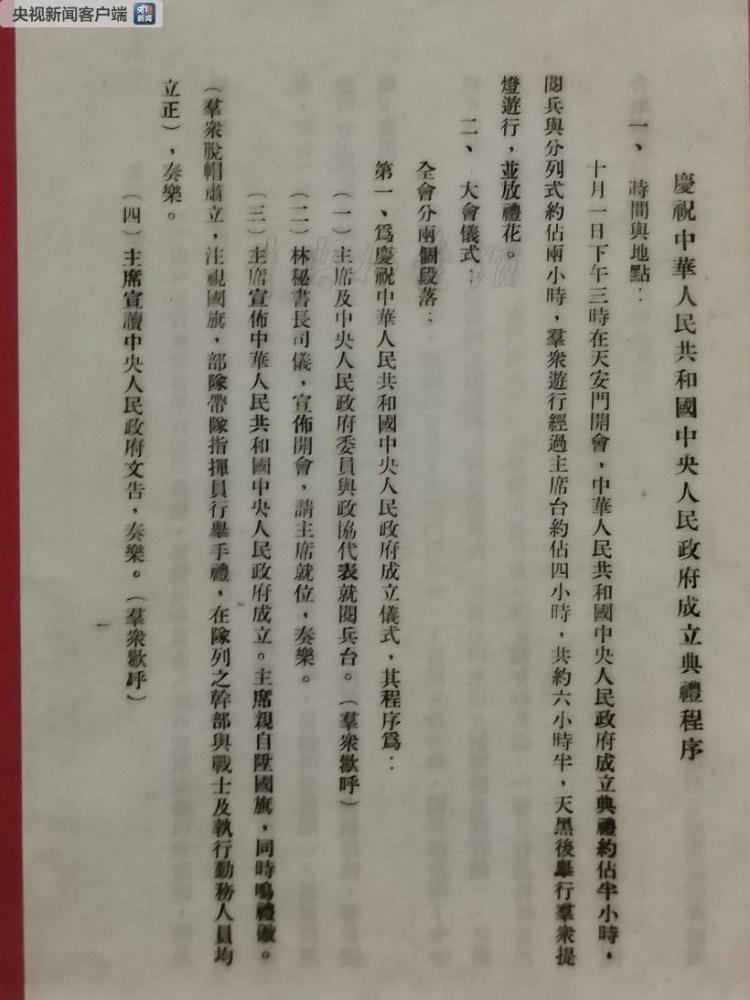 央视新闻客户端
央视
新闻
慶祝中華人民共和國中央人民政府成立典禮程序
一、時間與地點：
十月一日下午三時在天安門開會，中華人民共和國中央人民政府成立典禮約佔半小時，
閱兵與分列式約佔兩小時，羣衆遊行經過主席台約佔四小時，共約六小時半，天黑後舉行羣衆提
燈遊行，並放禮花。
二、大會儀式：
全會分兩個段落：
第一、爲慶祝中華人民共和國中央人民政府成立儀式，其程序爲：
（一）主席及中央人民政府委員與政協代表就閱兵台。（羣衆歡呼）
（二）林秘書長司儀，宣佈開會，請主席就位，奏樂。
（三）主席宣佈中華人民共和國中央人民政府成立。主席親自陞國旗，同時鳴禮礮。
（羣衆脫帽肅立，注視國旗，部隊帶隊指揮員行舉手禮，在隊列之幹部與戰士及執行勤務人員均
立正），奏樂。
（四）主席宣讀中央人民政府文告，奏樂。（羣衆歡呼）
一